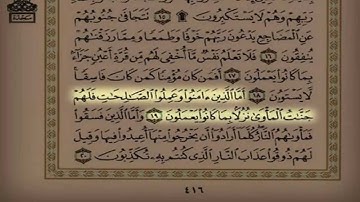 رَبِّهِمْ وَهُمْ لَا يَسْتَكْبِرُونَ ۩ ١٥ تَتَجَافَىٰ جُنُوبُهُمْ
عَنِ الْمَضَاجِعِ يَدْعُونَ رَبَّهُمْ خَوْفًا وَطَمَعًا وَمِمَّا رَزَقْنَاهُمْ
يُنفِقُونَ ١٦ فَلَا تَعْلَمُ نَفْسٌ مَّا أُخْفِيَ لَهُم مِّن قُرَّةِ أَعْيُنٍ جَزَاءً
بِمَا كَانُوا يَعْمَلُونَ ١٧ أَفَمَن كَانَ مُؤْمِنًا كَمَن كَانَ فَاسِقًا
لَّا يَسْتَوُونَ ١٨ أَمَّا الَّذِينَ آمَنُوا وَعَمِلُوا الصَّالِحَاتِ فَلَهُمْ
جَنَّاتُ الْمَأْوَىٰ نُزُلًا بِمَا كَانُوا يَعْمَلُونَ ١٩ وَأَمَّا الَّذِينَ فَسَقُوا
فَمَأْوَاهُمُ النَّارُ كُلَّمَا أَرَادُوا أَن يَخْرُجُوا مِنْهَا أُعِيدُوا فِيهَا وَقِيلَ
لَهُمْ ذُوقُوا عَذَابَ النَّارِ الَّذِي كُنتُم بِهِ تُكَذِّبُونَ ٢٠
٤١٦